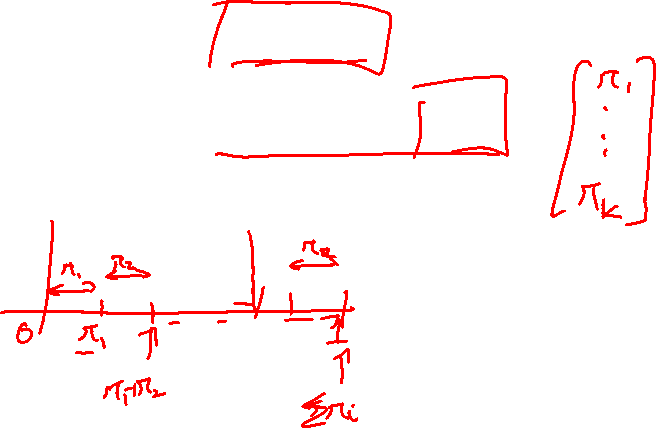 π₁
⋮
πₖ
π₁ π₂ πₖ
0 π₁
π₁+π₂
Σπᵢ